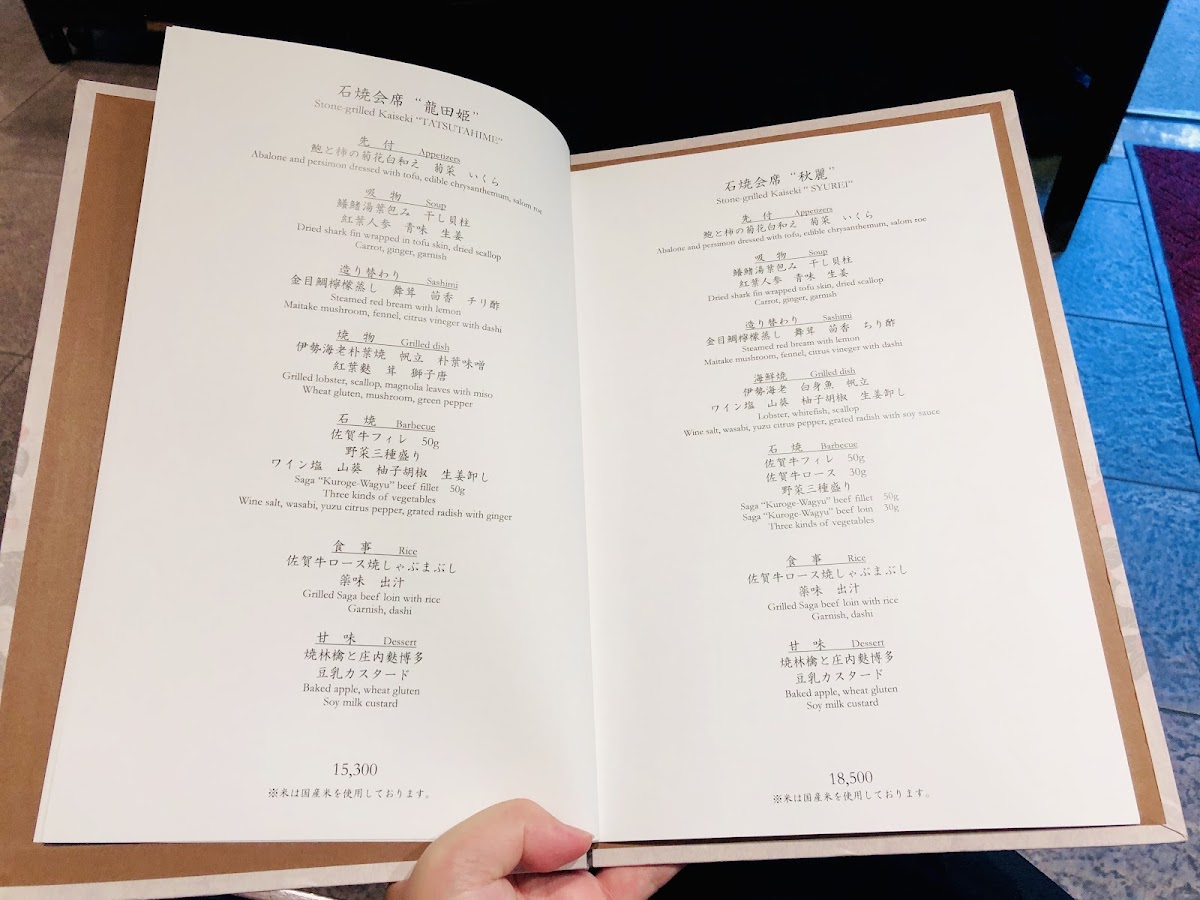 石焼会席 “龍田姫”
Stone-grilled Kaiseki “TATSUTAHIME”
先 付 Appetizers
鮑と柿の菊花白和え 菊菜 いくら
Abalone and persimon dressed with tofu, edible chrysanthemum, salom roe
吸 物 Soup
鱶鰭湯葉包み 干し貝柱
紅葉人参 青味 生姜
Dried shark fin wrapped in tofu skin, dried scallop
Carrot, ginger, garnish
造り替わり Sashimi
金目鯛檸檬蒸し 舞茸 茴香 チリ酢
Steamed red bream with lemon
Maitake mushroom, fennel, citrus vineger with dashi
焼 物 Grilled dish
伊勢海老朴葉焼 帆立 朴葉味噌
紅葉麩 茸 獅子唐
Grilled lobster, scallop, magnolia leaves with miso
Wheat gluten, mushroom, green pepper
石 焼 Barbecue
佐賀牛フィレ 50g
野菜三種盛り
ワイン塩 山葵 柚子胡椒 生姜卸し
Saga “Kuroge-Wagyu” beef fillet 50g
Three kinds of vegetables
Wine salt, wasabi, yuzu citrus pepper, grated radish with ginger
食 事 Rice
佐賀牛ロース焼しゃぶまぶし
薬味 出汁
Grilled Saga beef loin with rice
Garnish, dashi
甘 味 Dessert
焼林檎と庄内麩博多
豆乳カスタード
Baked apple, wheat gluten
Soy milk custard
15,300
※米は国産米を使用しております。
石焼会席 “秋麗”
Stone-grilled Kaiseki “ SYUREI”
先 付 Appetizers
鮑と柿の菊花白和え 菊菜 いくら
Abalone and persimon dressed with tofu, edible chrysanthemum, salom roe
吸 物 Soup
鱶鰭湯葉包み 干し貝柱
紅葉人参 青味 生姜
Dried shark fin wrapped tofu skin, dried scallop
Carrot, ginger, garnish
造り替わり Sashimi
金目鯛檸檬蒸し 舞茸 茴香 ちり酢
Steamed red bream with lemon
Maitake mushroom, fennel, citrus vinegar with dashi
海鮮焼 Grilled dish
伊勢海老 白身魚 帆立
ワイン塩 山葵 柚子胡椒 生姜卸し
Lobster, whitefish, scallop
Wine salt, wasabi, yuzu citrus pepper, grated radish with soy sauce
石 焼 Barbecue
佐賀牛フィレ 50g
佐賀牛ロース 30g
野菜三種盛り
Saga “Kuroge-Wagyu” beef fillet 50g
Saga “Kuroge-Wagyu” beef loin 30g
Three kinds of vegetables
食 事 Rice
佐賀牛ロース焼しゃぶまぶし
薬味 出汁
Grilled Saga beef loin with rice
Garnish, dashi
甘 味 Dessert
焼林檎と庄内麩博多
豆乳カスタード
Baked apple, wheat gluten
Soy milk custard
18,500
※米は国産米を使用しております。